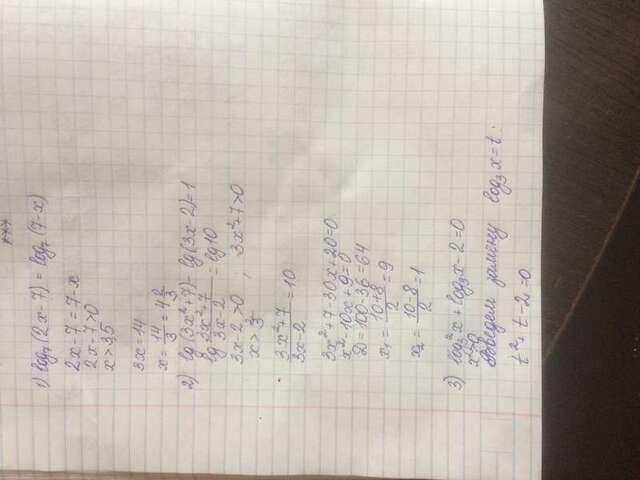 ***
1) log₇(2x-7) = log₇(7-x)
2x-7=7-x
2x-7>0
x>3,5
3x=14
x=14/3=4 2/3
2) lg(3x²+7)-lg(3x-2)=1
lg (3x²+7)/(3x-2) = lg10
3x-2>0, 3x²+7>0
x>2/3
(3x²+7)/(3x-2)=10
3x²+7-30x+20=0
x²-10x+9=0
D=100-36=64
x₁=(10+8)/2=9
x₂=(10-8)/2=1
3) log₃²x+log₃x-2=0
x>0
Введем замену log₃x=t.
t²+t-2=0